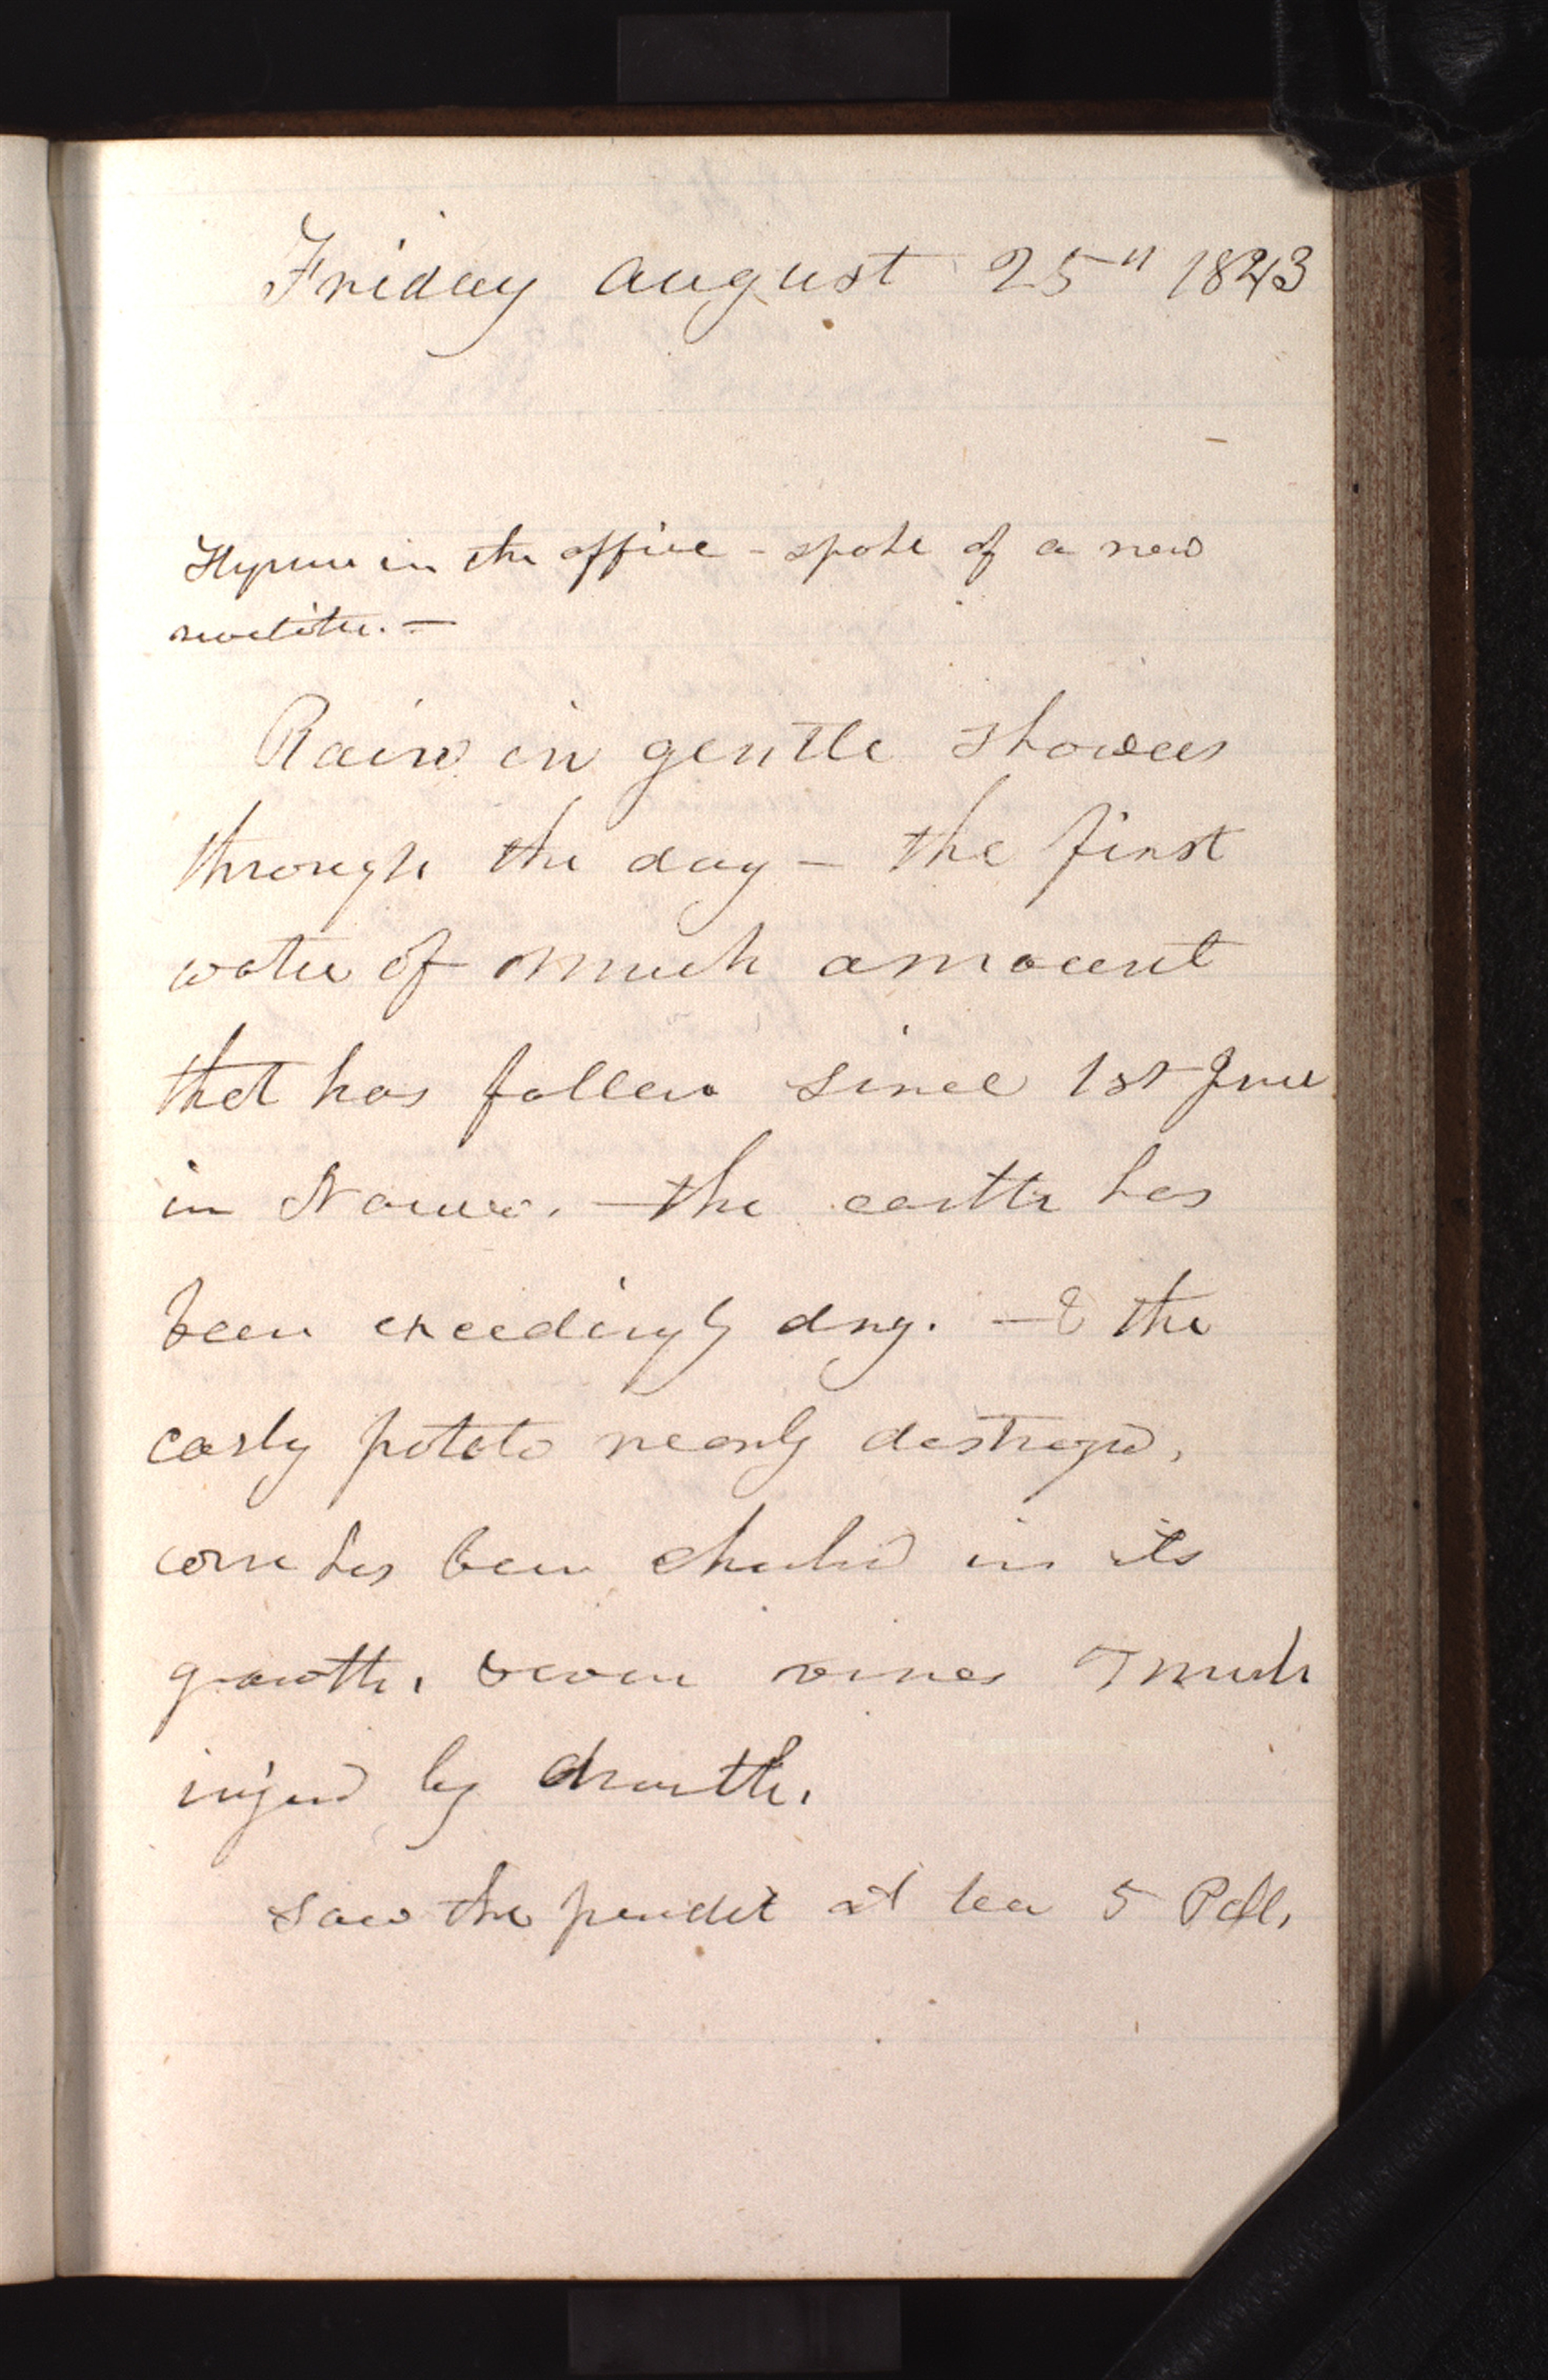 Friday august 25" 1843
Hyrum in the office - spoke of a new
revelation. —
Rain in gentle showers
through the day — the first
water of much amount
that has fallen since 1st June
in Nauvoo. — the earth has
been exceedingly dry. — & the
early potato nearly destroyed,
corn has been checked in its
growth, vines & much
injured by drouth.
saw the at tea 5 P.M.